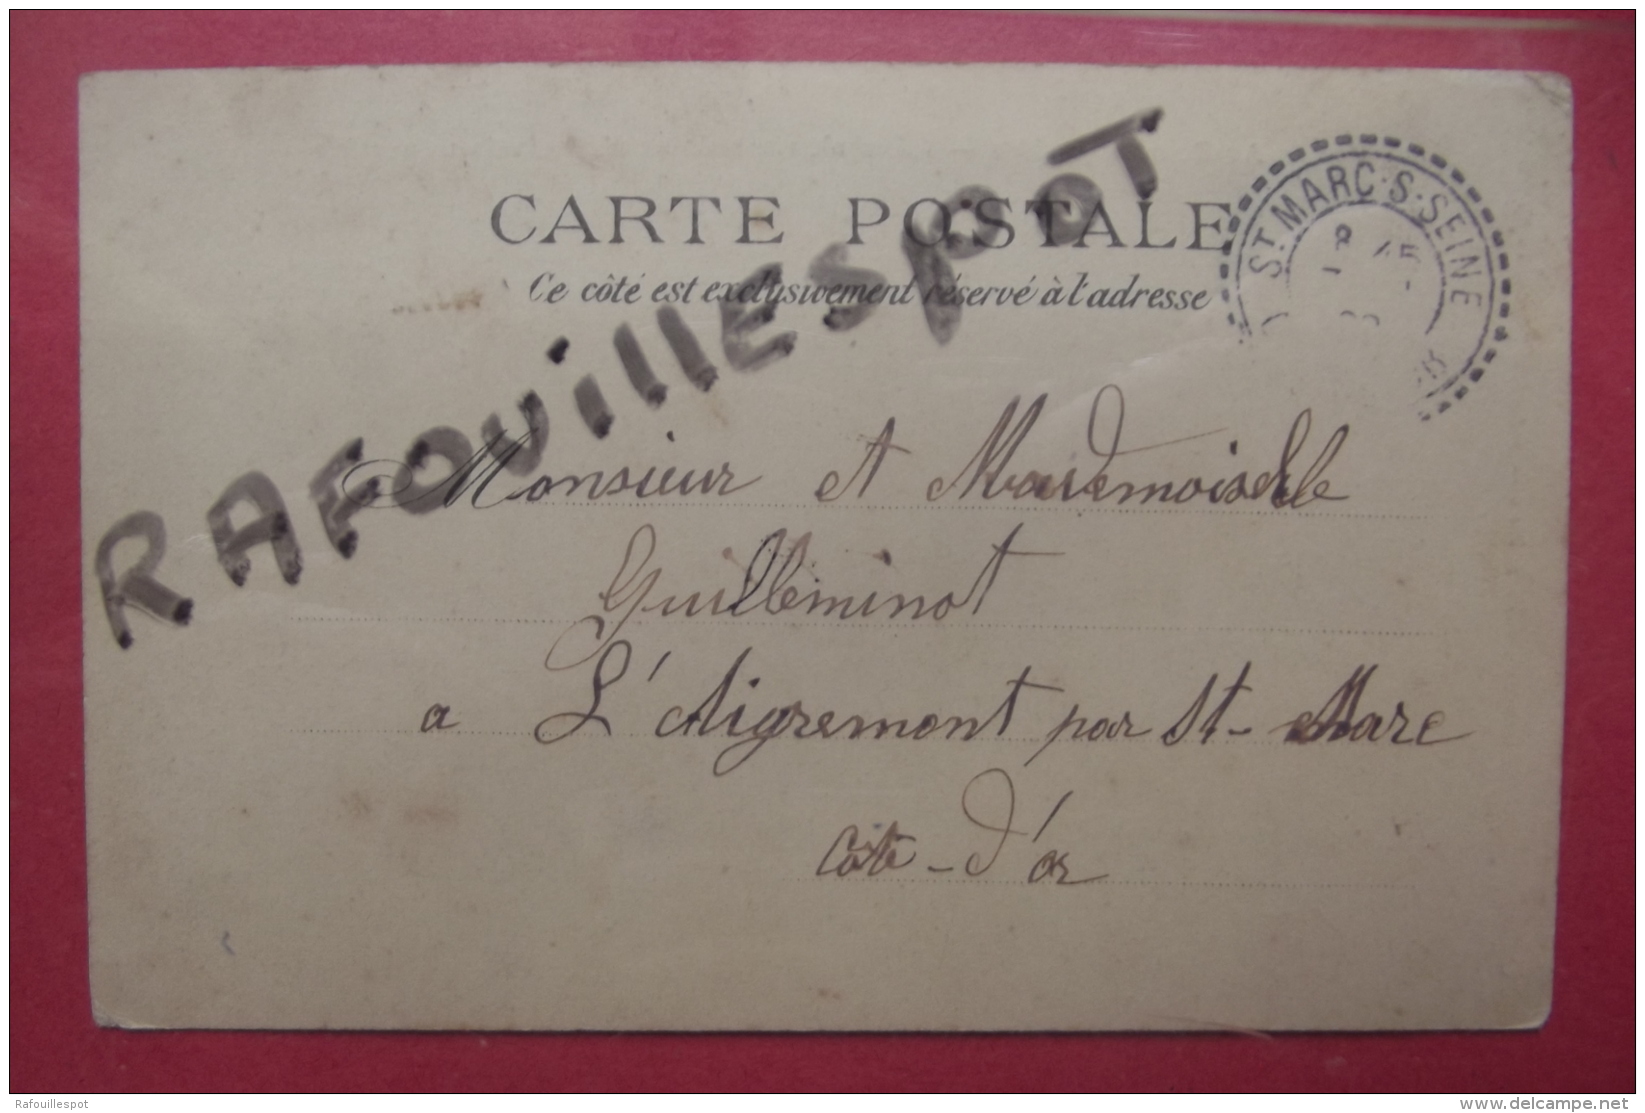 CARTE POSTALE
Ce côté est exclusivement réservé à l'adresse
ST MARC·S·SEINE
8
RAFOUILLESPOT
Monsieur et Mademoiselle
Guilleminot
a L'Aigremont par St-Marc
Côte-d'or
Rafouillespot
delcampe.net